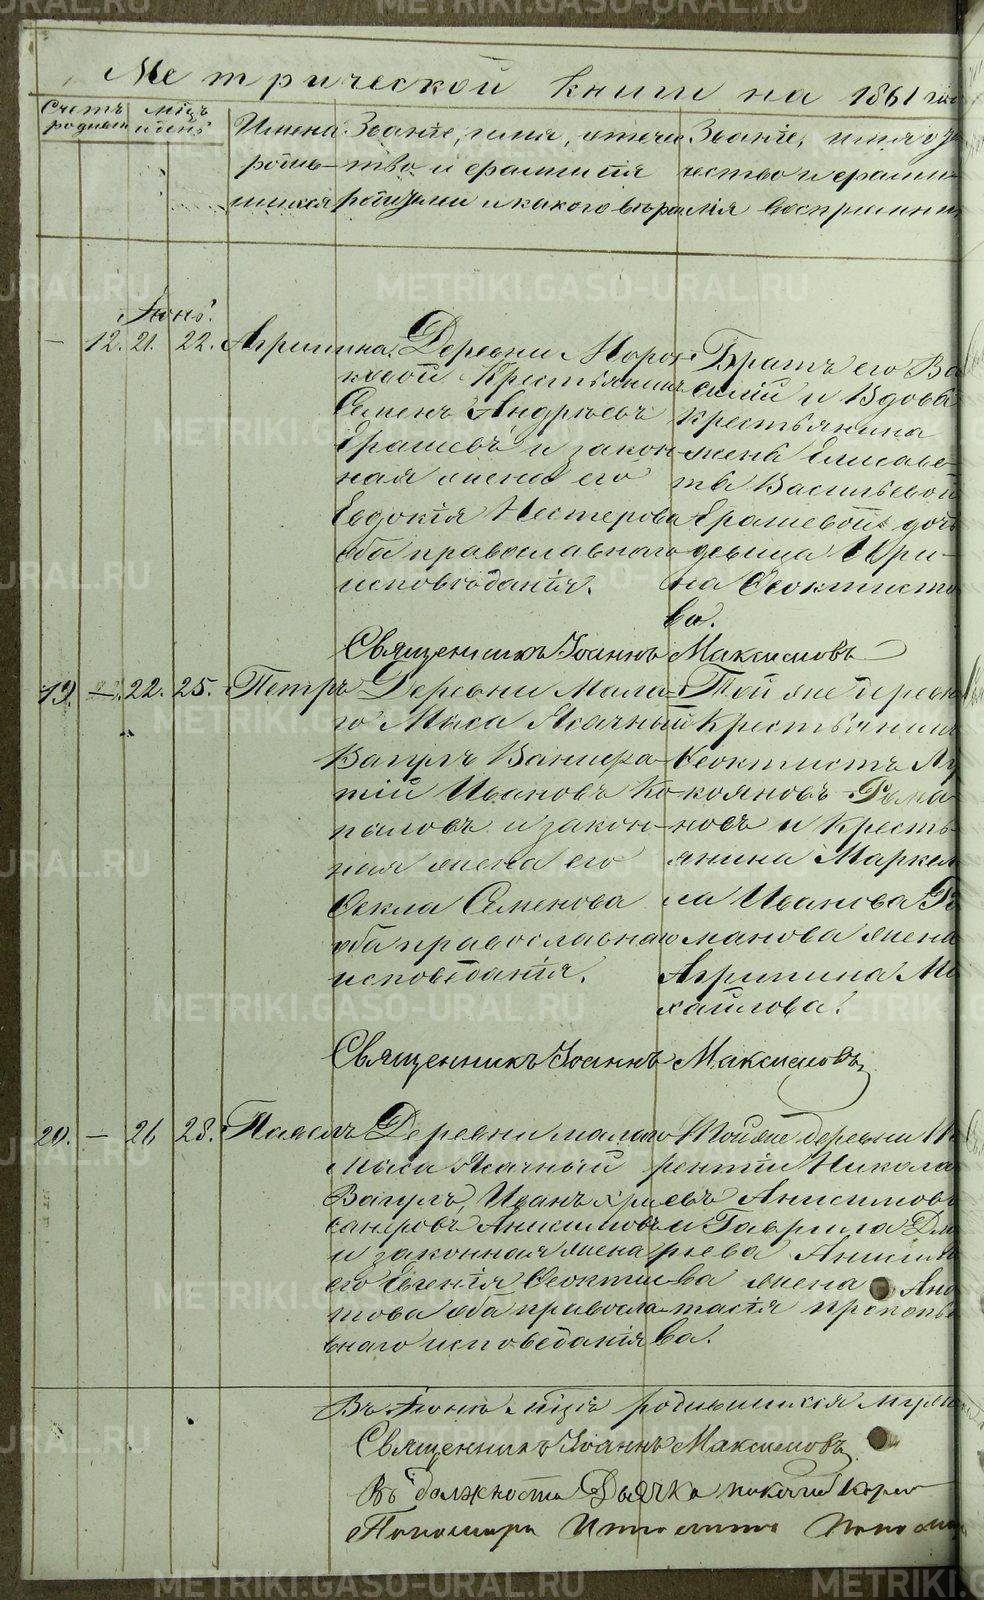 Метрической книги на 1861 годъ
Счетъ родивш.
мѣцъ и день
Имена родив-
шихся
Званіе, имя, отече-
ство и фамилія
родителей и какого вѣроис
Званіе, имя, от
чество и фами
лія воспріемни
Іюнь.
— 12. 21. 22. Агрипина.
Деревни Моро
ковой Крестьянинъ
Семенъ Андреевъ
Ерашевъ и закон-
ная жена его
Евдокія Нестерова
оба православнаго
исповѣданія.
Братъ его Ва
силій и Вдова
крестьянина
жена Елисаве-
та Васильевой
Ерашевой дочь
девица Ири-
на Ѳеоктисто
ва.
Священникъ Іоаннъ Максимовъ
19. — 22. 25. Петръ
Деревни Мала-
го Мыса Ясачный
Вагулъ Ванифа-
тій Ивановъ Ко-
паловъ и закон-
ная жена его
Ѳекла Семенова
оба православнаго
исповѣданія.
Той же деревн
Крестьянинъ
Ѳеоктистъ Лу
кояновъ Рома
носъ и кресть-
янина Маркел
ла Иванова Ро
манова жена
Агрипина Ми
хайлова.
Священникъ Іоаннъ Максимовъ
20. — 26 28. Павелъ
Деревни малаго
Мыса Ясачный
Вагулъ, Иванъ
сандровъ Анисимовъ
и законная жена
его Евгенія Ѳеоктис
това оба правосла-
внаго исповѣданія
Той же деревни
рентій Никола
евъ Анисимовъ
и Гаврила Дми
рьева Анисимо
ва жена Ана
стасія Прокопье
ва.
Въ Іюнѣ мѣцѣ родившихся мужес
Священникъ Іоаннъ Максимовъ
Въ должности Дьячка
Пономарь